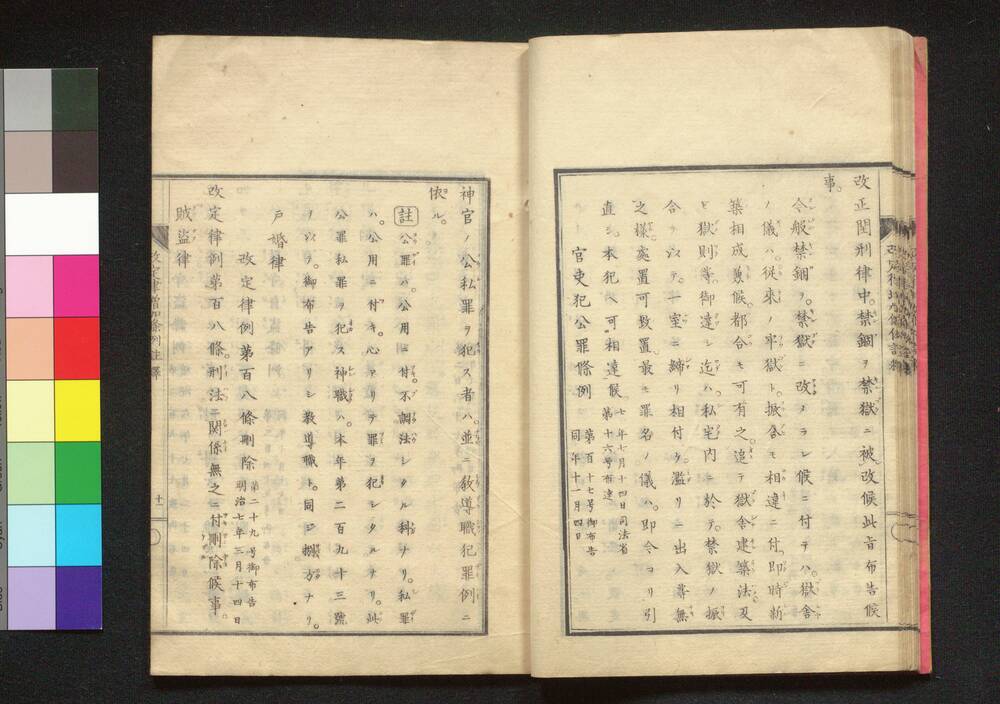 改正閏刑律中。禁錮ヲ禁獄ニ被改候此旨布告候
事。
今般禁錮ヲ。禁獄ニ改メラレ候ニ付テハ。獄舎
ノ儀ハ。従來ノ牢獄ト。振合モ相違ニ付。即時新
築相成兼候。都合モ可有之。追テ獄舎建築法及
ヒ獄則等。御達シ迄ハ。私宅内ニ於テ。禁獄ノ振
合ヲ以テ。一室ニ締リ相付ケ。濫リニ出入等無
之樣處置可致置。最モ罪名ノ儀ハ。即今ヨリ引
直シ。本犯ヘ可相達候
七年七月十四日司法省
第十六号布達
官吏犯公罪條例
第百十七号御布告
同年十一月四日
神官ノ公私罪ヲ犯ス者ハ。並ニ敎導職犯罪例ニ
依ル。
註 公罪ハ。公用ニ付。不調法シタル科ナリ。私罪
ハ。公用ニ付キ。心アリテ罪ヲ犯シタルナリ。此
公罪私罪ヲ犯ス神職ハ。本年第二百九十三號
ヲ以テ。御布告アリシ敎導職ト。同ジ捌方ナリ。
戸婚律
改定律例第百八條刪除
第二十九号御布告
明治七年三月十四日
改定律例第百八條。刑法ニ關係無之ニ付刪除候事。
賊盜律
改定律增加條例註釋
十二